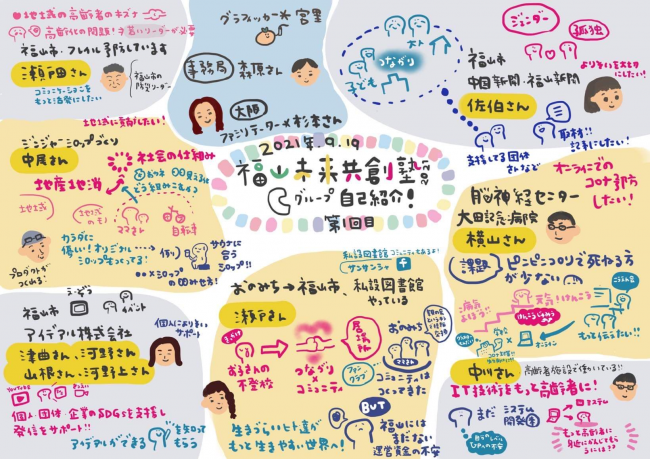 地域の高齢者のキズナ
福山市・フレイル予防しています
瀬戸田さん
コミュニケーションを
もっと活発にしたい
福山市の
防災リーダー
グラフィッカー 宮里
事務局
森原さん
大阪
ファシリテーター 杉本さん
つながり
大人
子ども
ジェンダー
孤独
福山市
中国新聞・福山新聞
佐伯さん
取材!!
記事にしたい!
支援してる団体
2021年.9.19
福山未来共創塾
Cグループ自己紹介!
第1回目
地域に貢献したい!
ジンジャーシロップづくり
中尾さん
社会の仕組み
地産地消
ママさん
自転車
カラダに
優しい!オリジナル
シロップをつくってる!
サウナに
合う
シロップ!!
プロダクトが
つくれる!
オンラインでの
コロナ予防
したい!
脳神経センター
大田記念病院
横山さん
課題
ピンピンコロリで死ねる方
が少ない
病気
予防
元気
けんこう
オンライン
もっと伝えたい!!
私設図書館
サンサンシャ
おのみち→福山市、私設図書館
やっている
瀬戸さん
きっかけ
お子さんの
不登校
つながり
×
コミュニティ
居場所
ファン
クラブ
おのみち
ママさん
コミュニティは
つくってきた
BUT
福山には
まだない
運営資金の不安
生きづらいヒト達が
もっと生きやすい世界へ!
福山市
イベント
アイデアル株式会社
津曲さん、河野さん
山根さん、河野上さん
個人によりそい
サポート
YouTube
個人、団体、企業のSDGsを支援し
発信をサポート!!
アイデアルができる
を知って
もらう
中川さん
高齢者施設で働いている!!
IT技術をもっと高齢者に!
まだ
システム
開発中
システム
もっと高齢者に
身近にかんじてもら
うには??